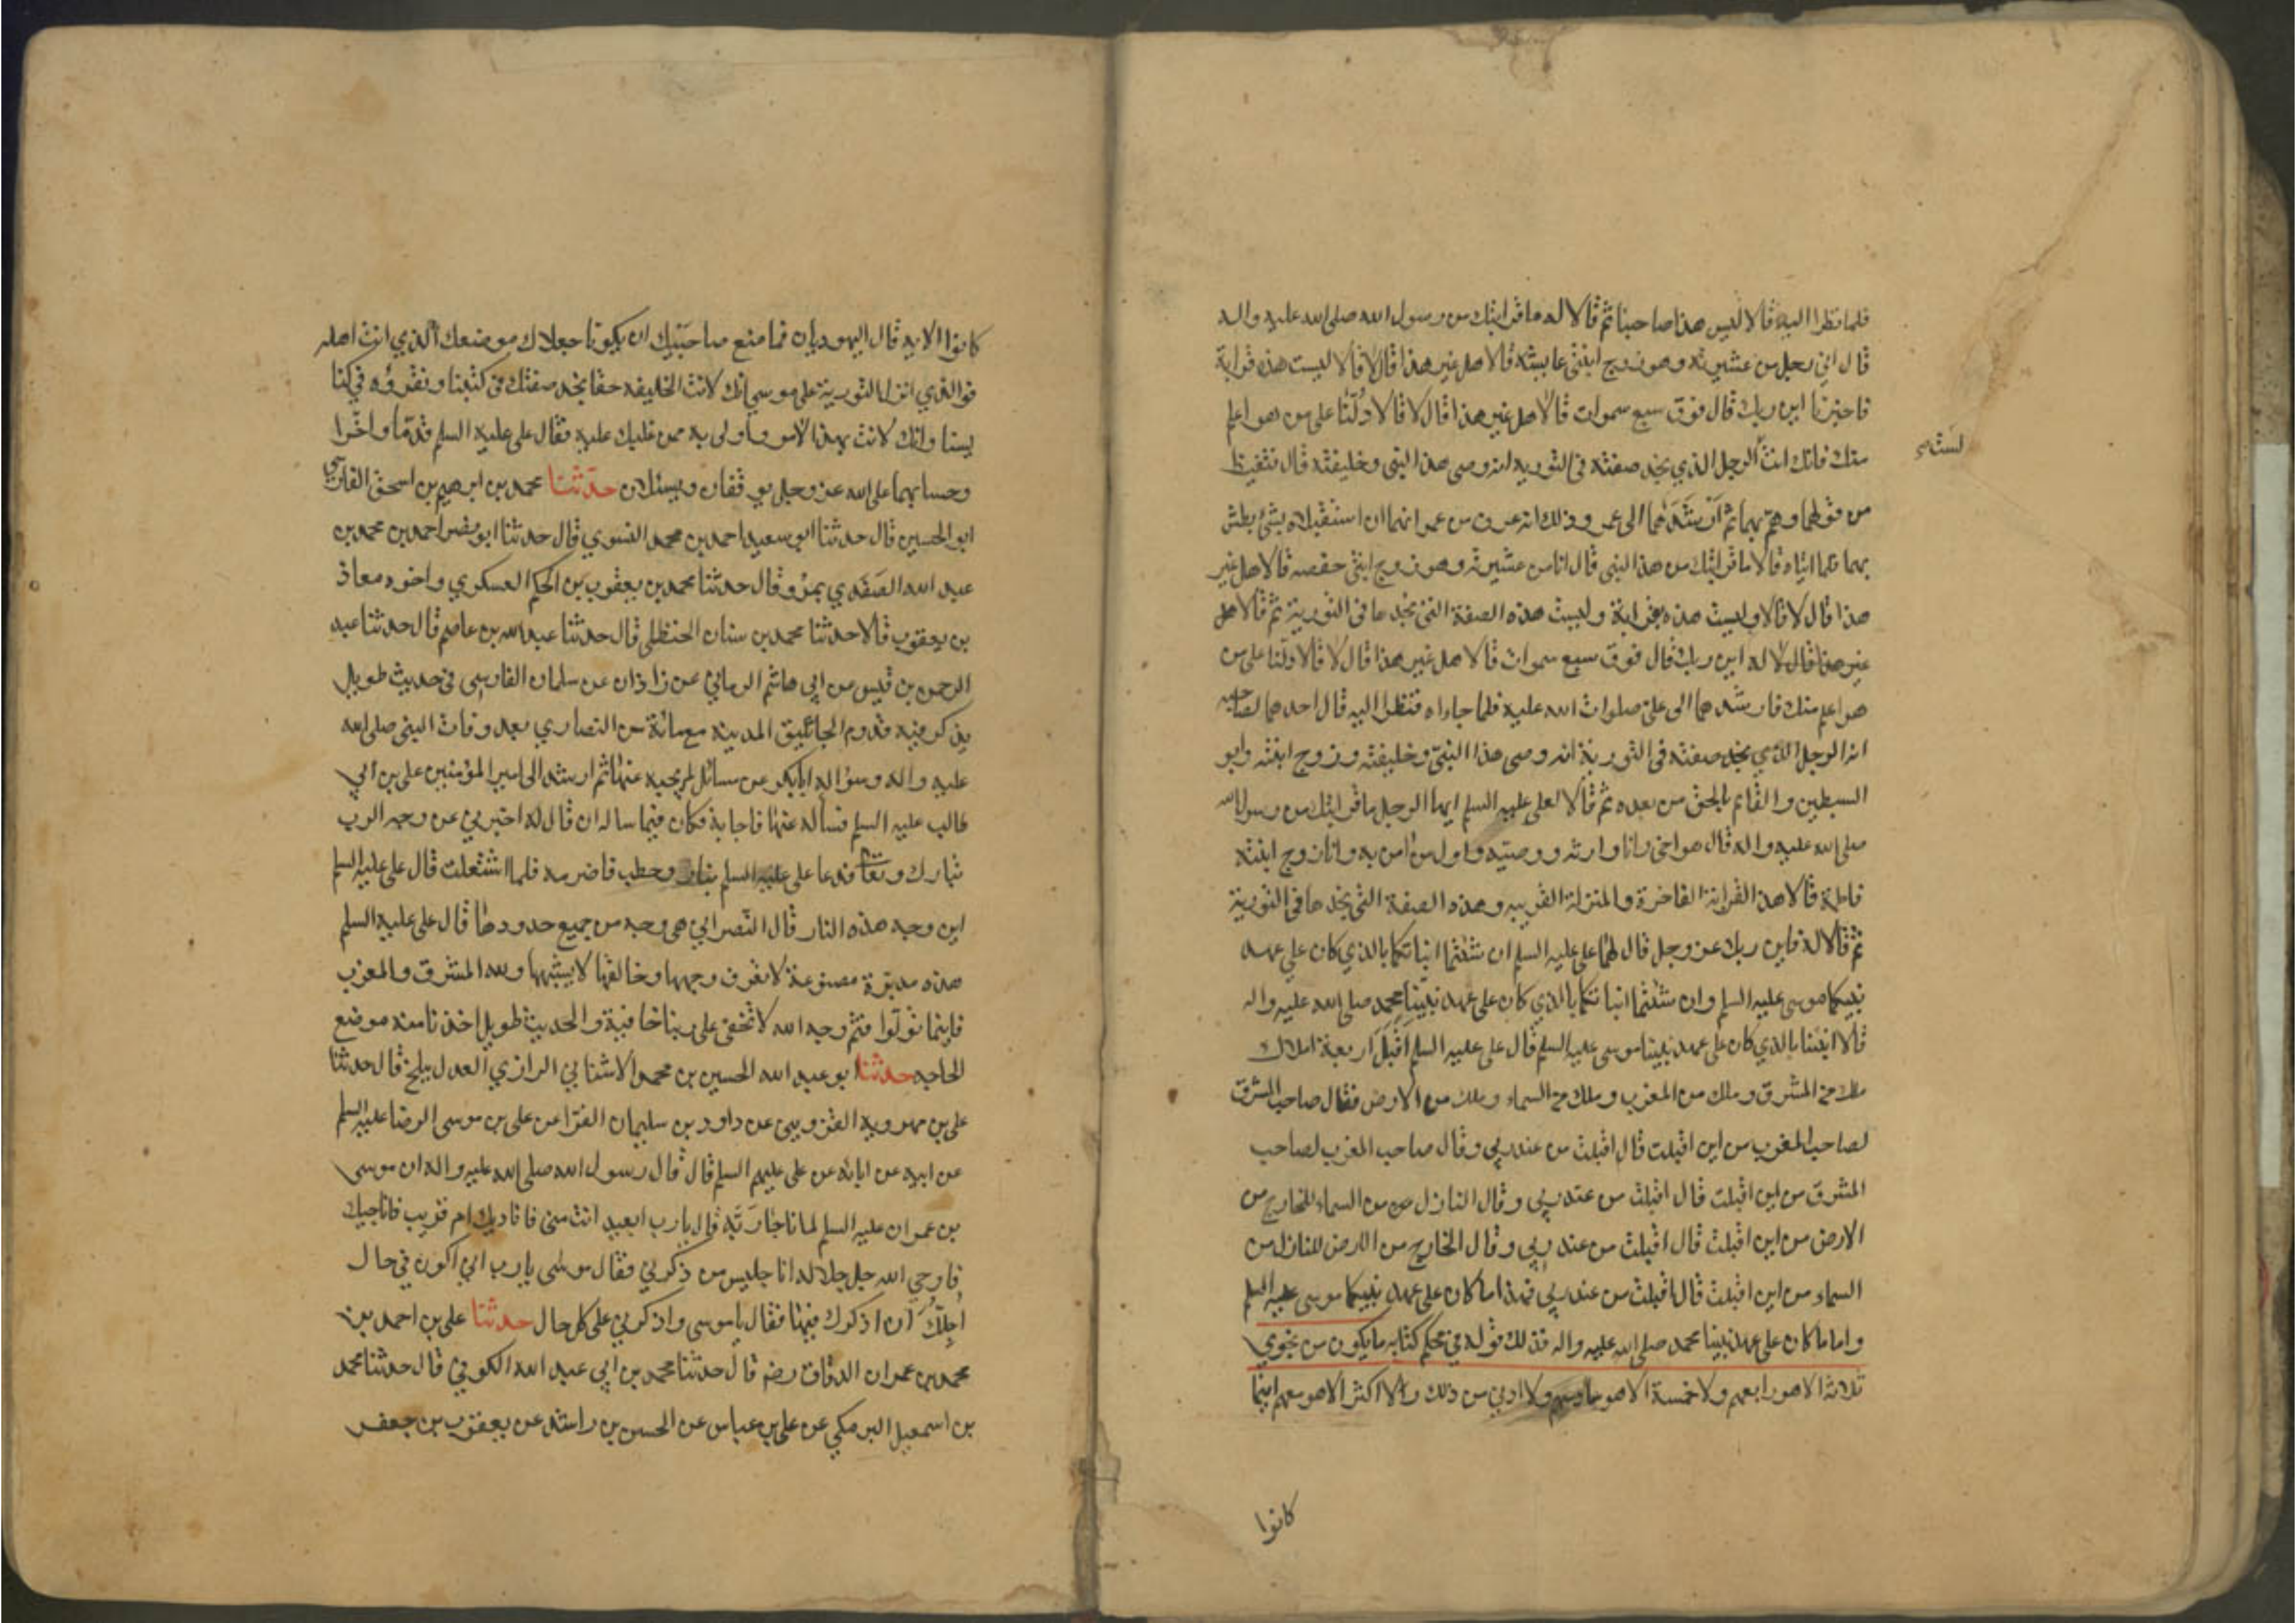 فلما نظرا اليه قالا ليس هذا صاحبنا ثم قالا له ما قرابتك من رسول الله صلى الله عليه واله
قال اني رجل من عشيرته وهو زوج ابنتي عايشه قالا هل غير هذا قال لا قالا ليست هذه قرابة
فاخبرنا اين ربك قال فوق سبع سموات قالا هل غير هذا قال لا قالا دلنا على من هو اعلم
منك فانك انت الرجل الذي نجد صفته في التورية انه وصى هذا النبي وخليفته قال فتغيظ
لست
من قولهما وهم بهما ثم ارشدهما الى عمر وذلك انه عرف من عمر انهما ان استقبلاه بشئ بطش
بهما فلما اتياه قالا ما قرابتك من هذا النبي قال انا من عشيرته وهو زوج ابنتي حفصه قالا هل غير
هذا قال لا قالا وليست هذه بقرابة وليست هذه الصفة التي نجدها في التورية ثم قالا هل
غير هذا قال لا له اين ربك قال فوق سبع سموات قالا هل غير هذا قال لا قالا دلنا على من
هو اعلم منك فارشدهما الى علي صلوات الله عليه فلما جاءاه فنظرا اليه قال احدهما لصاحبه
انه الرجل الذي نجد صفته في التورية انه وصى هذا النبي وخليفته وزوج ابنته وابو
السبطين والقائم بالحق من بعده ثم قالا لعلي عليه السلم ايها الرجل ما قرابتك من رسول الله
صلى الله عليه واله قال هو اخي وانا وارثه ووصيه واول من امن به وانا زوج ابنته
فاطمة قالا هذه القرابة الفاخرة والمنزلة القريبه وهذه الصفة التي نجدها في التورية
ثم قالا له فاين ربك عز وجل قال لهما علي عليه السلم ان شئتما انباتكما بالذي كان على عهد
نبيكما موسى عليه السلم وان شئتما انباتكما بالذي كان على عهد نبينا محمد صلى الله عليه واله
قالا انبئنا بالذي كان على عهد نبينا موسى عليه السلم قال علي عليه السلم اقبل اربعة املاك
ملك من المشرق وملك من المغرب وملك من السماء وملك من الارض فقال صاحب المشرق
لصاحب المغرب من اين اقبلت قال اقبلت من عند ربي وقال صاحب المغرب لصاحب
المشرق من اين اقبلت قال اقبلت من عند ربي وقال النازل من السماء للخارج من
الارض من اين اقبلت قال اقبلت من عند ربي وقال الخارج من الارض للنازل من
السماء من اين اقبلت قال اقبلت من عند ربي فهذا ما كان على عهد نبيكما موسى عليه السلم
واما ما كان على عهد نبينا محمد صلى الله عليه واله فذلك قوله في محكم كتابه ما يكون من نجوي
ثلاثة الا هو رابعهم ولا خمسة الا هو سادسهم ولا ادني من ذلك ولا اكثر الا هو معهم اينما
كانوا
كانوا الايه قال اليهوديان فما منع صاحبيك ان يكونا جعلاك موضعك الذي انت اهله
فوالذي انزل التورية على موسى انك لانت الخليفه حقا نجد صفتك في كتبنا ونقرؤه في كنا
يسنا وانك لانت بهذا الامر واولى به ممن غلبك عليه فقال علي عليه السلم قدما واخرا
وحسابهما على الله عز وجل يوقفان ويسئلان حدثنا محمد بن ابرهيم بن اسحق الفارسي
ابو الحسين قال حدثنا ابو سعيد احمد بن محمد النسوي قال حدثنا ابو نصر احمد بن محمد بن
عبد الله الصغدي بمرو قال حدثنا محمد بن يعقوب بن الحكم العسكري واخوه معاذ
بن يعقوب قالا حدثنا محمد بن سنان الحنظلي قال حدثنا عبد الله بن عاصم قال حدثنا عبد
الرحمن بن قيس عن ابي هاشم الرماني عن زاذان عن سلمان الفارسي في حديث طويل
يذكر فيه قدوم الجاثليق المدينة مع مائة من النصاري بعد وفات النبي صلى الله
عليه واله وسؤاله ابا بكر عن مسائل لم يجبه عنها ثم ارشد الى امير المؤمنين علي بن ابي
طالب عليه السلم فساله عنها فاجابه فكان فيما ساله ان قال له اخبرني عن وجه الرب
تبارك وتعا فدعا علي عليه السلم بنار وحطب فاضرمه فلما اشتعلت قال علي عليه السلم
اين وجه هذه النار قال النصراني هي وجه من جميع حدودها قال علي عليه السلم
هذه مدبرة مصنوعة لا تعرف وجهها وخالقها لا يشبهها ولله المشرق والمغرب
فاينما تولوا فثم وجه الله لا تخفى على ربنا خافية والحديث طويل اخذنا منه موضع
الحاجه حدثنا ابو عبد الله الحسين بن محمد الاشناني الرازي العدل ببلخ قال حدثنا
علي بن مهرويه القزويني عن داود بن سليمان الفرا عن علي بن موسى الرضا عليه السلم
عن ابيه عن ابائه عن علي عليهم السلم قال قال رسول الله صلى الله عليه واله ان موسى
بن عمران عليه السلم لما ناجا ربه قال يا رب ابعيد انت مني فاناديك ام قريب فاناجيك
فاوحي الله جل جلاله انا جليس من ذكرني فقال موسى يا رب اني اكون في حال
اجلك ان اذكرك فيها فقال يا موسى واذكرني على كل حال حدثنا علي بن احمد بن
محمد بن عمران الدقاق رضه قال حدثنا محمد بن ابي عبد الله الكوفي قال حدثنا محمد
بن اسمعيل البرمكي عن علي بن عباس عن الحسن بن راشد عن يعقوب بن جعفر